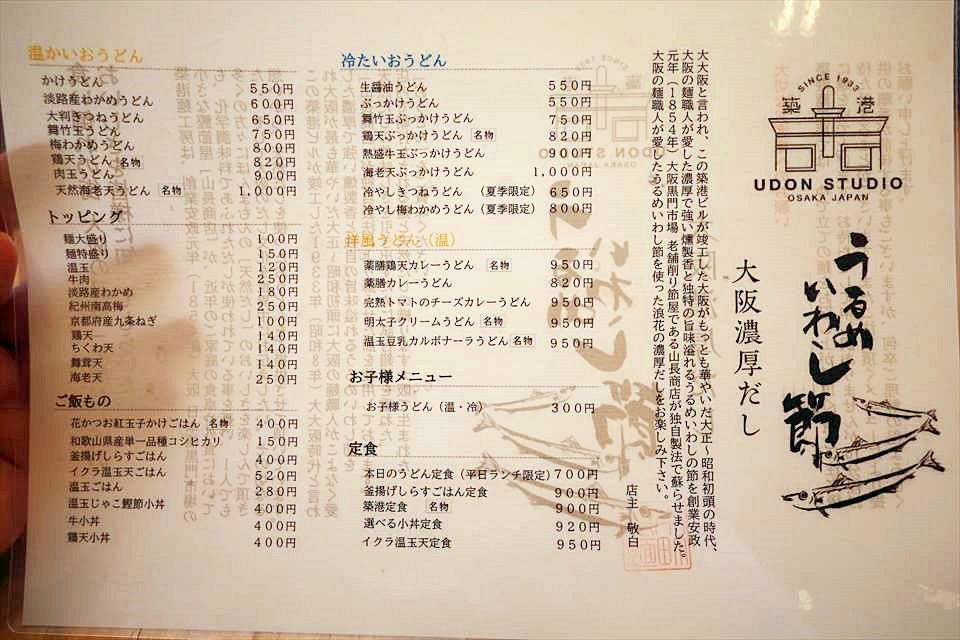 温かいおうどん
かけうどん 550円
淡路産わかめうどん 600円
大判きつねうどん 650円
舞竹玉うどん 750円
梅わかめうどん 800円
鶏天うどん 名物 820円
肉玉うどん 900円
天然海老天うどん 名物 1,000円
トッピング
麺大盛り 100円
麺特盛り 150円
温玉 120円
牛肉 250円
淡路産わかめ 180円
紀州南高梅 250円
京都府産九条ねぎ 100円
鶏天 140円
ちくわ天 140円
舞茸天 140円
海老天 250円
ご飯もの
花かつお紅玉子かけごはん 名物 400円
和歌山県産単一品種コシヒカリ 150円
釜揚げしらすごはん 400円
イクラ温玉天ごはん 520円
温玉ごはん 280円
温玉じゃこ鰹節小丼 400円
牛小丼 400円
鶏天小丼 400円
冷たいおうどん
生醤油うどん 550円
ぶっかけうどん 550円
舞竹玉ぶっかけうどん 750円
鶏天ぶっかけうどん 名物 820円
熱盛牛玉ぶっかけうどん 900円
海老天ぶっかけうどん 1,000円
冷やしきつねうどん (夏季限定) 650円
冷やし梅わかめうどん (夏季限定) 800円
洋風うどん(温)
薬膳鶏天カレーうどん 名物 950円
薬膳カレーうどん 820円
完熟トマトのチーズカレーうどん 950円
明太子クリームうどん 名物 950円
温玉豆乳カルボナーラうどん 名物 950円
お子様メニュー
お子様うどん(温・冷) 300円
定食
本日のうどん定食(平日ランチ限定) 700円
釜揚げしらすごはん定食 900円
築港定食 名物 900円
選べる小丼定食 920円
イクラ温玉天定食 950円
SINCE 1933
築港
UDON STUDIO
OSAKA JAPAN
うるめ
いわし
節
大阪濃厚だし
大大阪と言われ、この築港ビルが竣工した大阪がもっとも華やいだ大正〜昭和初頭の時代、
大阪の麺職人が愛した濃厚で強い燻製香と独特の旨味溢れるうるめいわしの節を創業安政
元年(1854年)大阪黒門市場 老舗削り節屋である山長商店が独自製法で蘇らせました。
大阪の麺職人が愛したうるめいわし節を使った浪花の濃厚だしをお楽しみ下さい。
店主 敬白